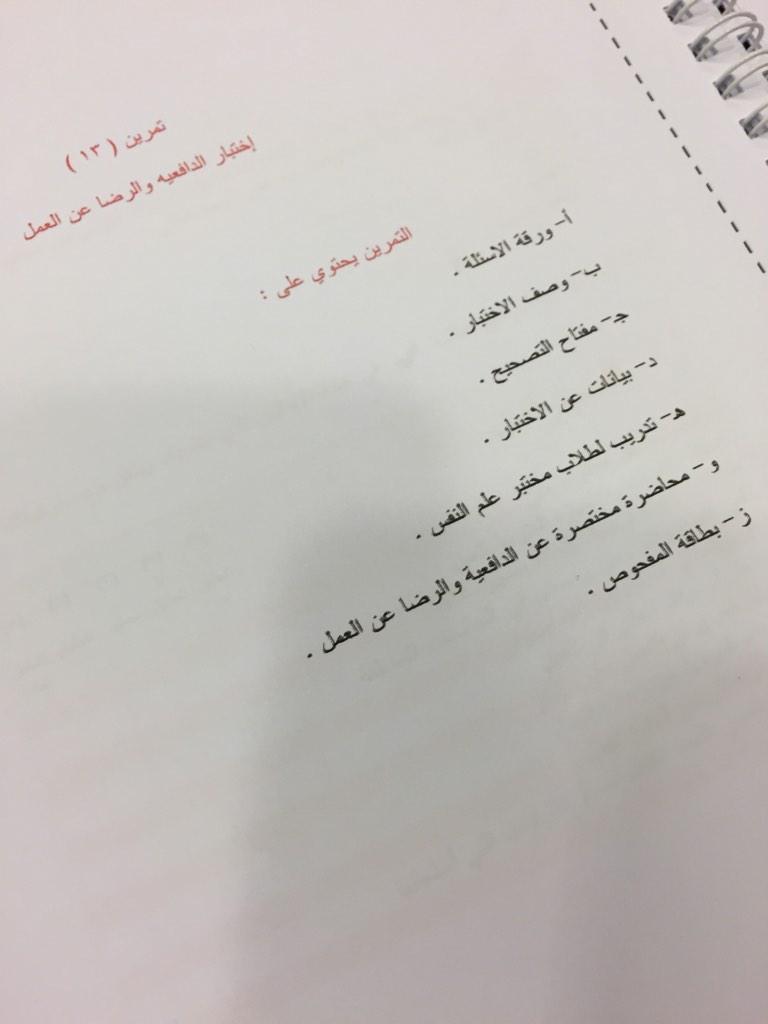 تمرين ( ١٣ )
إختبار الدافعيه والرضا عن العمل
التمرين يحتوي على :
أ- ورقة الاسئلة .
ب- وصف الاختبار .
جـ- مفتاح التصحيح .
د- بيانات عن الاختبار .
هـ- تدريب لطلاب مختبر علم النفس .
و- محاضرة مختصرة عن الدافعية والرضا عن العمل .
ز- بطاقة المفحوص .